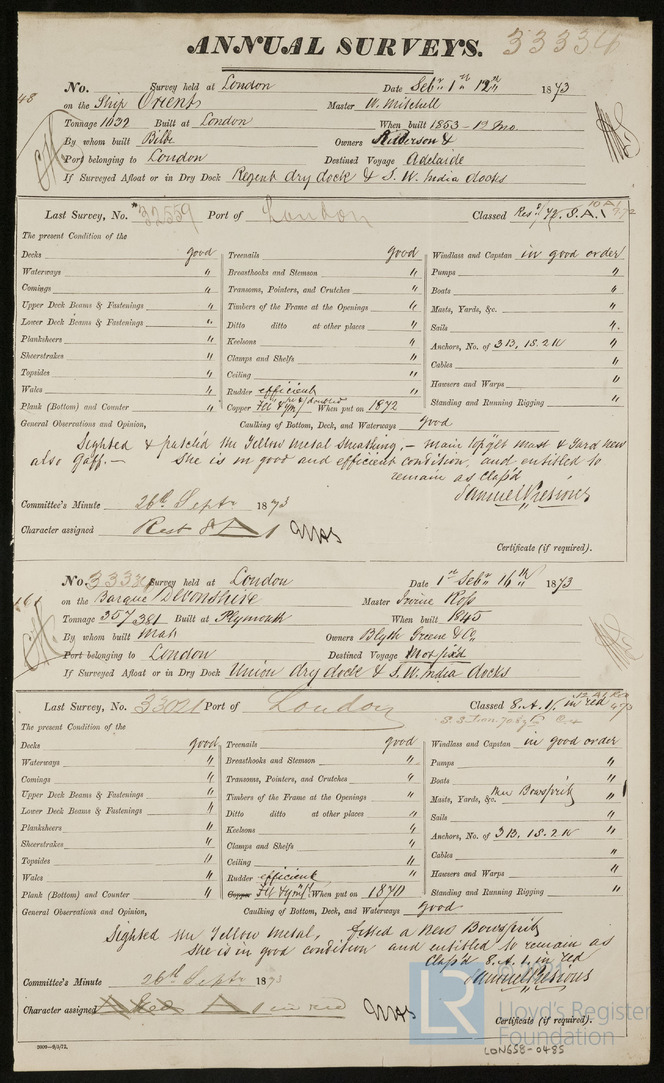 ANNUAL SURVEYS. 33334
48
No. Survey held at London Date Sepr 1st 12th 1873
on the Ship Orient Master W. Mitchell
Tonnage 1032 Built at London When built 1853 - 12 mo.
By whom built Bilbe Owners &
Port belonging to London Destined Voyage Adelaide
If Surveyed Afloat or in Dry Dock Regent dry dock & S. W. India docks
Last Survey, No. 32559 Port of London Classed
The present Condition of the
Decks good Treenails good Windlass and Capstan in good order
Waterways " Breasthooks and Stemson " Pumps "
Comings " Transoms, Pointers, and Crutches " Boats "
Upper Deck Beams & Fastenings " Timbers of the Frame at the Openings " Masts, Yards, &c. "
Lower Deck Beams & Fastenings " Ditto ditto at other places " Sails "
Planksheers " Keelsons " Anchors, No. of 3 B, 1 S. 2 K "
Sheerstrakes " Clamps and Shelfs " Cables "
Topsides " Ceiling " Hawsers and Warps "
Wales " Rudder efficient Standing and Running Rigging "
Plank (Bottom) and Counter " Copper When put on 1872
General Observations and Opinion, Caulking of Bottom, Deck, and Waterways good
Sighted & patch'd the Yellow Metal Sheathing, - main topg't mast & Yard new
also Gaff. - She is in good and efficient condition, and entitled to
remain as class'd
Samuel Presious
Committee's Minute 26th Septr 1873
Character assigned Rest A 1
Certificate (if required).
No. 33334 Survey held at London Date 1st Sepr 16th 1873
on the Barque Devonshire Master Irvine Ross
Tonnage 357/381 Built at Plymouth When built 1845
By whom built Owners Blyth Greene & Co
Port belonging to London Destined Voyage
If Surveyed Afloat or in Dry Dock Union dry dock & S. W. India docks
Last Survey, No. 33021 Port of London Classed in red
The present Condition of the
Decks good Treenails good Windlass and Capstan in good order
Waterways " Breasthooks and Stemson " Pumps "
Comings " Transoms, Pointers, and Crutches " Boats "
Upper Deck Beams & Fastenings " Timbers of the Frame at the Openings " Masts, Yards, &c. New Bowsprit "
Lower Deck Beams & Fastenings " Ditto ditto at other places " Sails "
Planksheers " Keelsons " Anchors, No. of 3 B, 1 S. 2 K "
Sheerstrakes " Clamps and Shelfs " Cables "
Topsides " Ceiling " Hawsers and Warps "
Wales " Rudder efficient Standing and Running Rigging "
Plank (Bottom) and Counter " Copper When put on 1870
General Observations and Opinion, Caulking of Bottom, Deck, and Waterways good
Sighted the Yellow Metal, fitted a New Bowsprit
She is in good condition and entitled to remain as
class'd 8. A. 1. in red
Samuel Presious
Committee's Minute 26th Septr 1873
Character assigned A 1 in red
Certificate (if required).
LR
Lloyd's Register
Foundation
2000—8/3/72.
LON658-0485